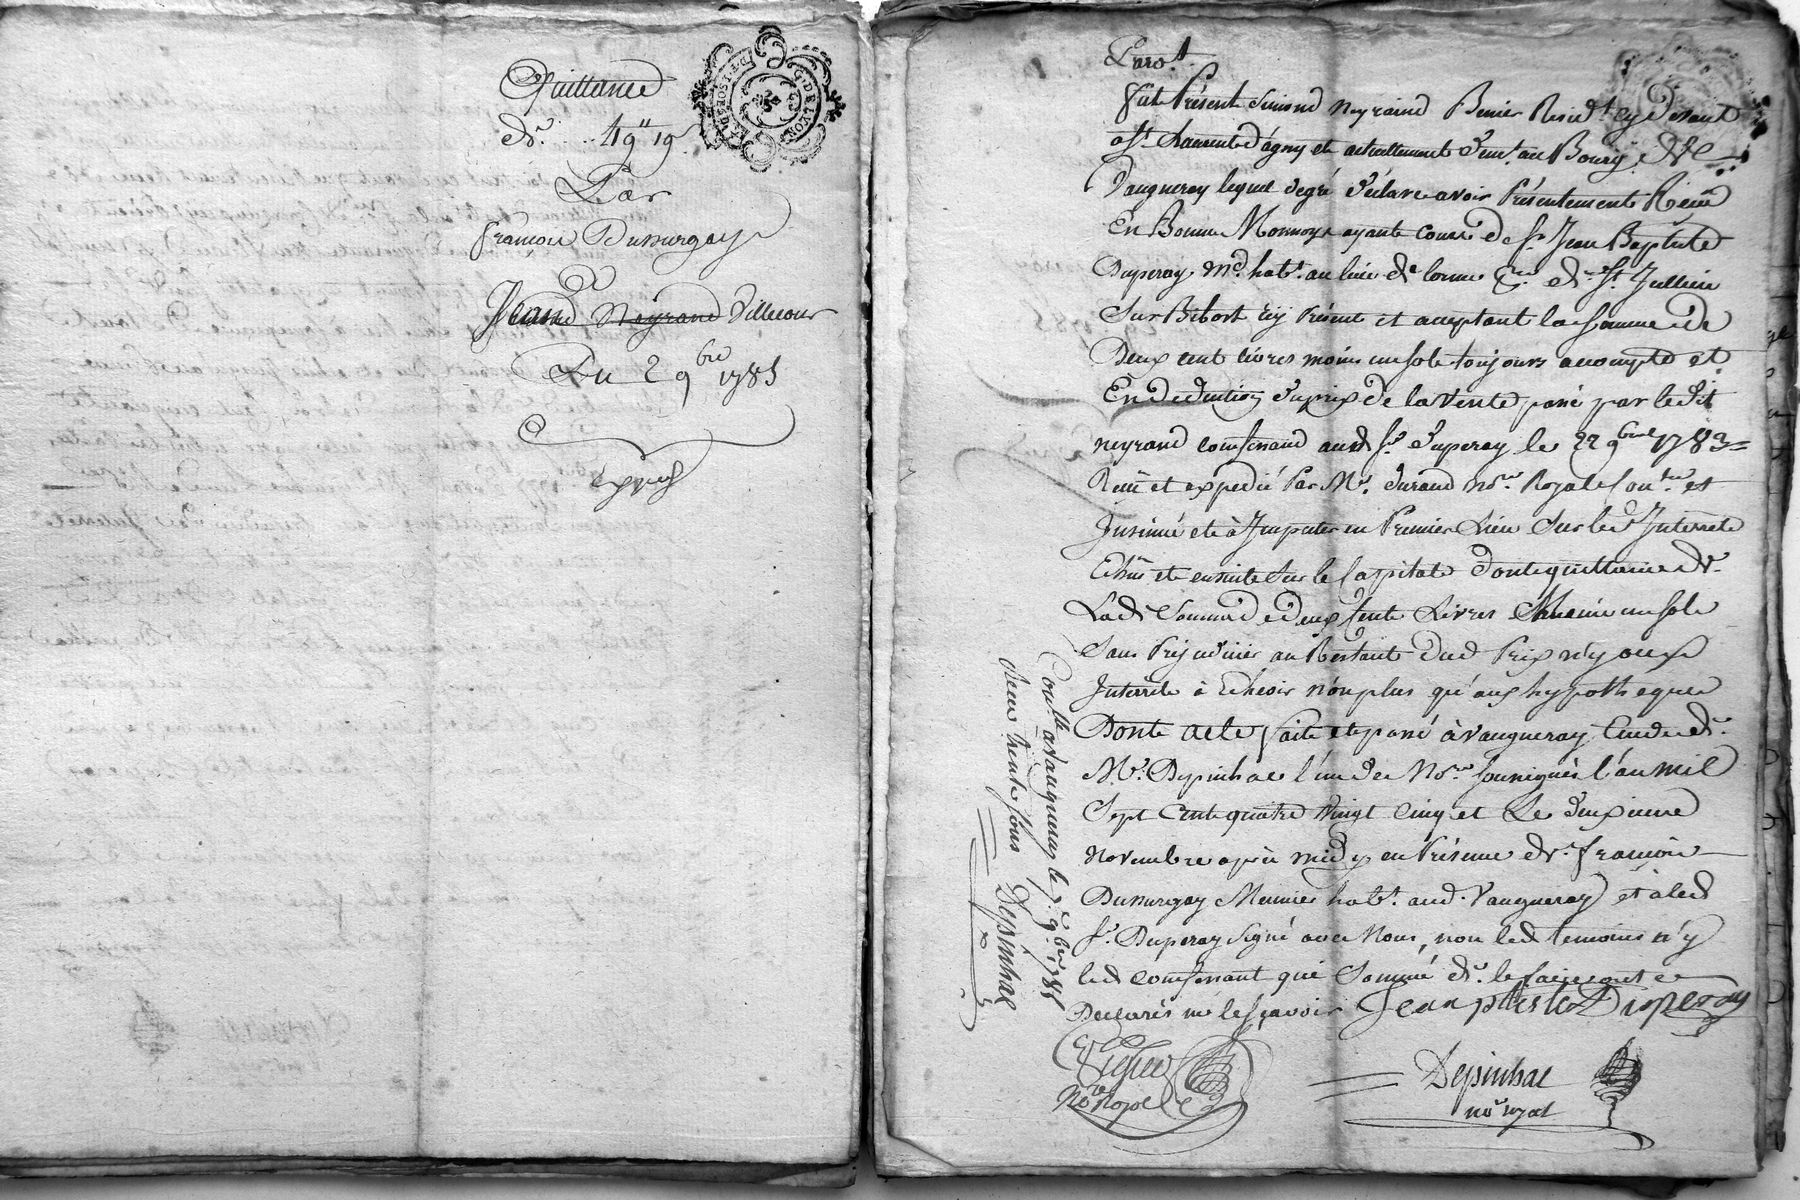 Quittance
de .. 49ᵗᵗ 19ˢ
Par
françois Dussurgay
a
Jean Neyrand Villecour
Du 2 9bre 1785
exp
D'ISOR
G.D.E LYON
fut Présent Simond Neyraud Resid.t cy devant
a St. Laurent d'agny et actuellement dem.t au Bourg de
Vaugneray lequel degré déclare avoir Présentement Receu
En Bonne Monnoye ayant cours de Sr. Jean Baptiste
Duperay md. habt. au lieu de St. Jullien
Sur Bibost icy Présent et acceptant la somme de
Deux cent livres moins un sols toujours acompte et
En deduction du prix de la vente passé par ledit
neyrand confessant aud. Sr. Duperay le 22 9bre 1783
Receu et expedié Par Me. Durand nore. Royal et
Insinué et à Imputer en Premier Lieu sur les Interrets
Echus et ensuite sur le Capital dont quittance de
Lad. Somme de deux Cent Livres moins un sols
Sans Préjudicier au Restant dud. Prix n'y aux
Interrets à Echeoir non plus qu'aux hypothèques
Dont acte fait et passé à vaugneray Etude de
Me. Depinhac l'un des Nores. soussignés l'an mil
Sept Cent quatre Vingt Cinq et Le deuxieme
novembre après midy en Présence de françois
Dussurgay Meunier habt. aud. Vaugneray et à led.
Sr. Duperay signé avec Nous, non led. temoins n'y
led. confessant qui Sommé de le faire ont
Declarés ne le sçavoir Jean ptiste Duperay
nore royal
Depinhac
nore royal
Conllé a Vaugneray le 9bre 1785
Receu trente sous Depinhac